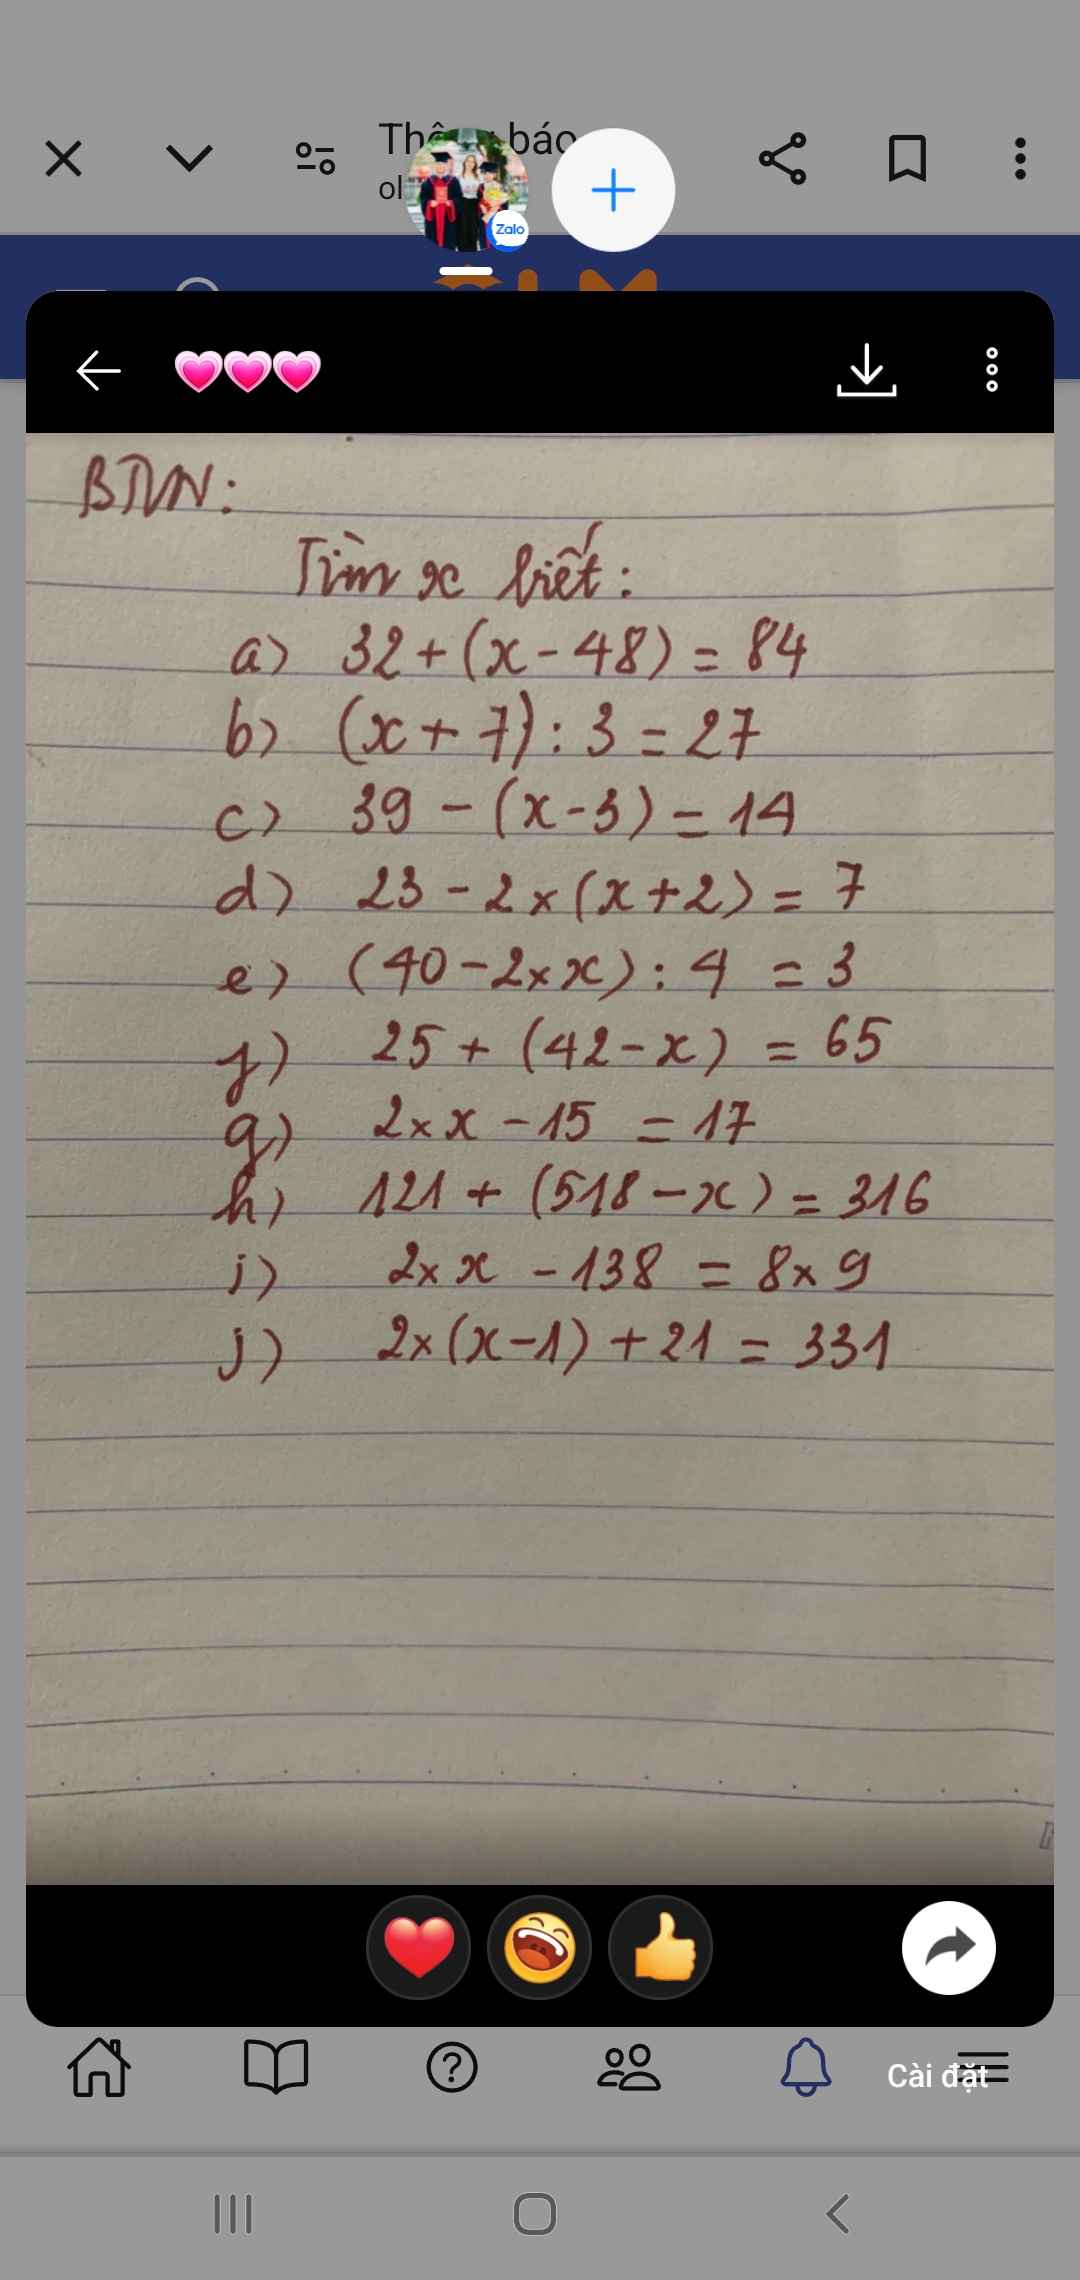 Thông báo
ol
Zalo
BTVN:
Tìm x biết:
a) 32 + (x - 48) = 84
b) (x + 7) : 3 = 27
c) 39 - (x - 3) = 14
d) 23 - 2 × (x + 2) = 7
e) (40 - 2 × x) : 4 = 3
f) 25 + (42 - x) = 65
g) 2 × x - 15 = 17
h) 121 + (518 - x) = 316
i) 2 × x - 138 = 8 × 9
j) 2 × (x - 1) + 21 = 331
Cài đặt